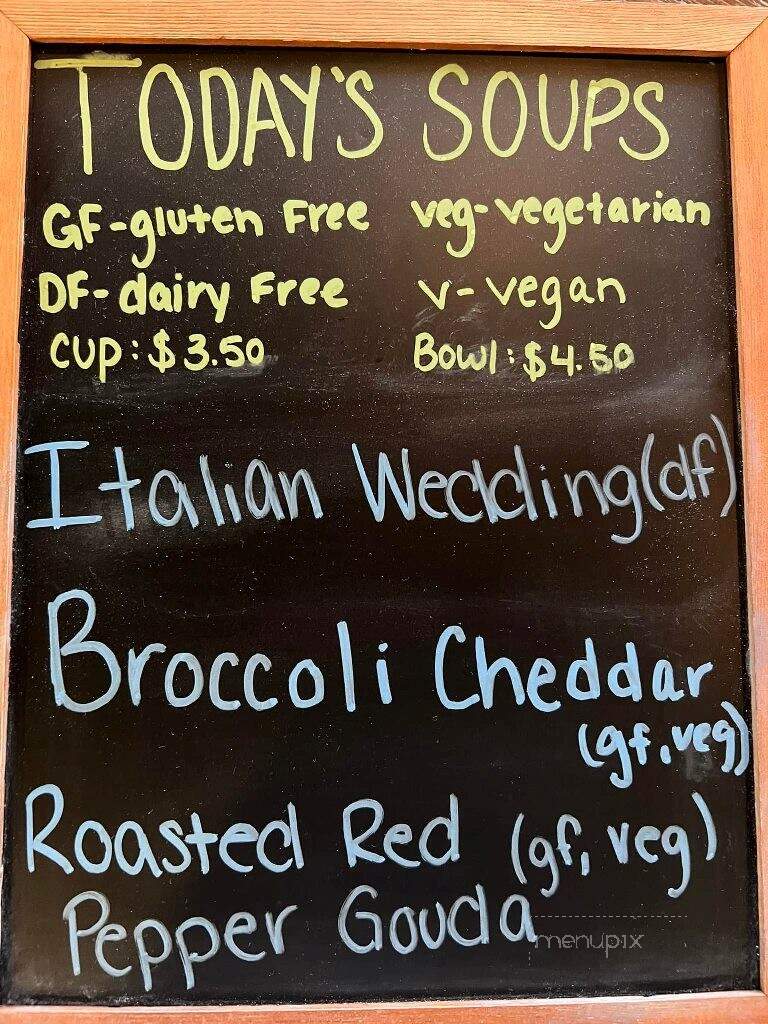 TODAY'S SOUPS
GF-gluten Free veg-vegetarian
DF-dairy Free v-vegan
CUP: $3.50 Bowl: $4.50
Italian Wedding (df)
Broccoli Cheddar
(gf, veg)
Roasted Red (gf, veg)
Pepper Gouda
menupix